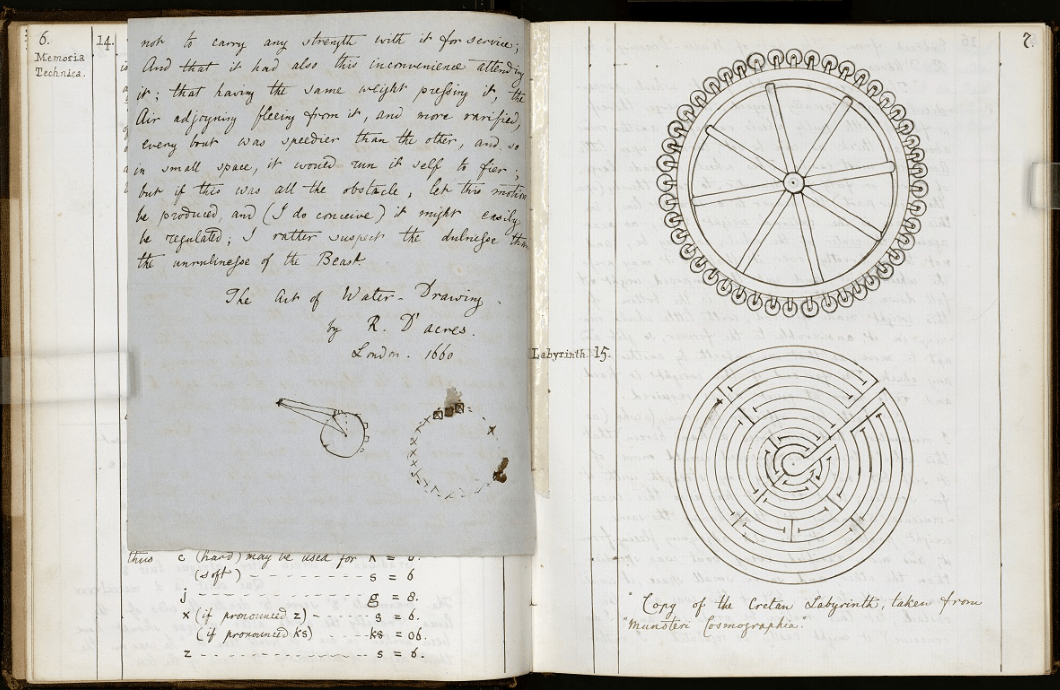 6.
Memoria
Technica.
14.
not to carry any strength with it for service;
And that it had also this inconvenience attending
it; that having the same weight pressing it, the
Air adjoyning fleeing from it, and more rarified,
every bout was speedier than the other, and so
in small space, it would run it self to fier;
but if this was all the obstacle, let this motion
be produced, and (I do conceive) it might easily
be regulated; I rather suspect the dulnesse then
the unrulinesse of the Beast.
The Art of Water-Drawing
by R. D'acres.
London. 1660
thus c (hard) may be used for k = 0.
(soft) - - - - - - - - - s = 6
j - - - - - - - - - - - - g = 8.
x (if pronounced z) - - - - s = 6.
(if pronounced ks) - - - - ks = 06.
z - - - - - - - - - - - - s = 6.
7.
Labyrinth.
15.
Copy of the Cretan Labyrinth, taken from
"Munsteri Cosmographia".